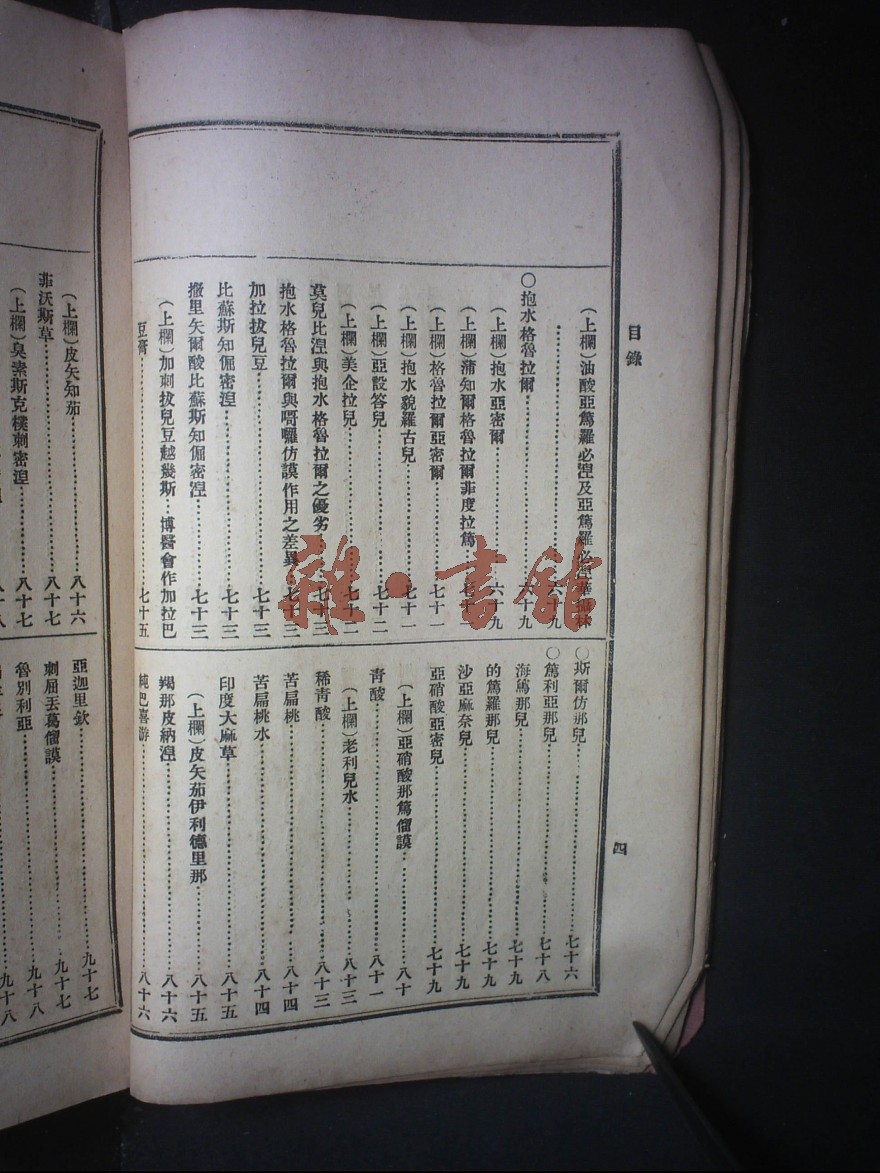 目錄
四
（上欄）油酸亞篤羅必涅及亞篤羅必涅華攝林
…………………………六十九
〇抱水格魯拉爾…………六十九
（上欄）抱水亞密爾…………六十九
（上欄）蒲知爾格魯拉爾菲度拉篤…七十
（上欄）格魯拉爾亞密爾…………七十一
（上欄）抱水貌羅古兒…………七十一
（上欄）亞設答兒…………七十二
（上欄）美企拉兒…………七十二
莫兒比涅與抱水格魯拉爾之優劣…七十三
抱水格魯拉爾與哥囉仿謨作用之差異…七十三
加拉拔兒豆…………七十三
比蘇斯知倔密涅…………七十三
撒里矢爾酸比蘇斯知倔密涅…………七十三
（上欄）加剌拔兒豆越幾斯…博醫會作加拉巴
豆膏…………七十五
〇斯爾仿那兒…………七十六
〇篤利亞那兒…………七十八
海篤那兒…………七十九
的篤羅那兒…………七十九
沙亞麻奈兒…………七十九
亞硝酸亞密兒…………七十九
（上欄）亞硝酸那篤僧謨…………八十
青酸…………八十一
（上欄）老利兒水…………八十三
稀青酸…………八十三
苦扁桃…………八十四
苦扁桃水…………八十四
印度大麻草…………八十五
（上欄）皮矢茄伊利德里那…………八十五
羯那皮納涅…………八十六
純巴喜游…………八十六
（上欄）皮矢知茄…………八十六
菲沃斯草…………八十七
（上欄）臭素斯克樸剌密涅…………八十七
八十八
亞迦里欽…………九十七
刺屈丟葛僧謨…………九十七
魯別利亞…………九十八
九十八
雜·書館